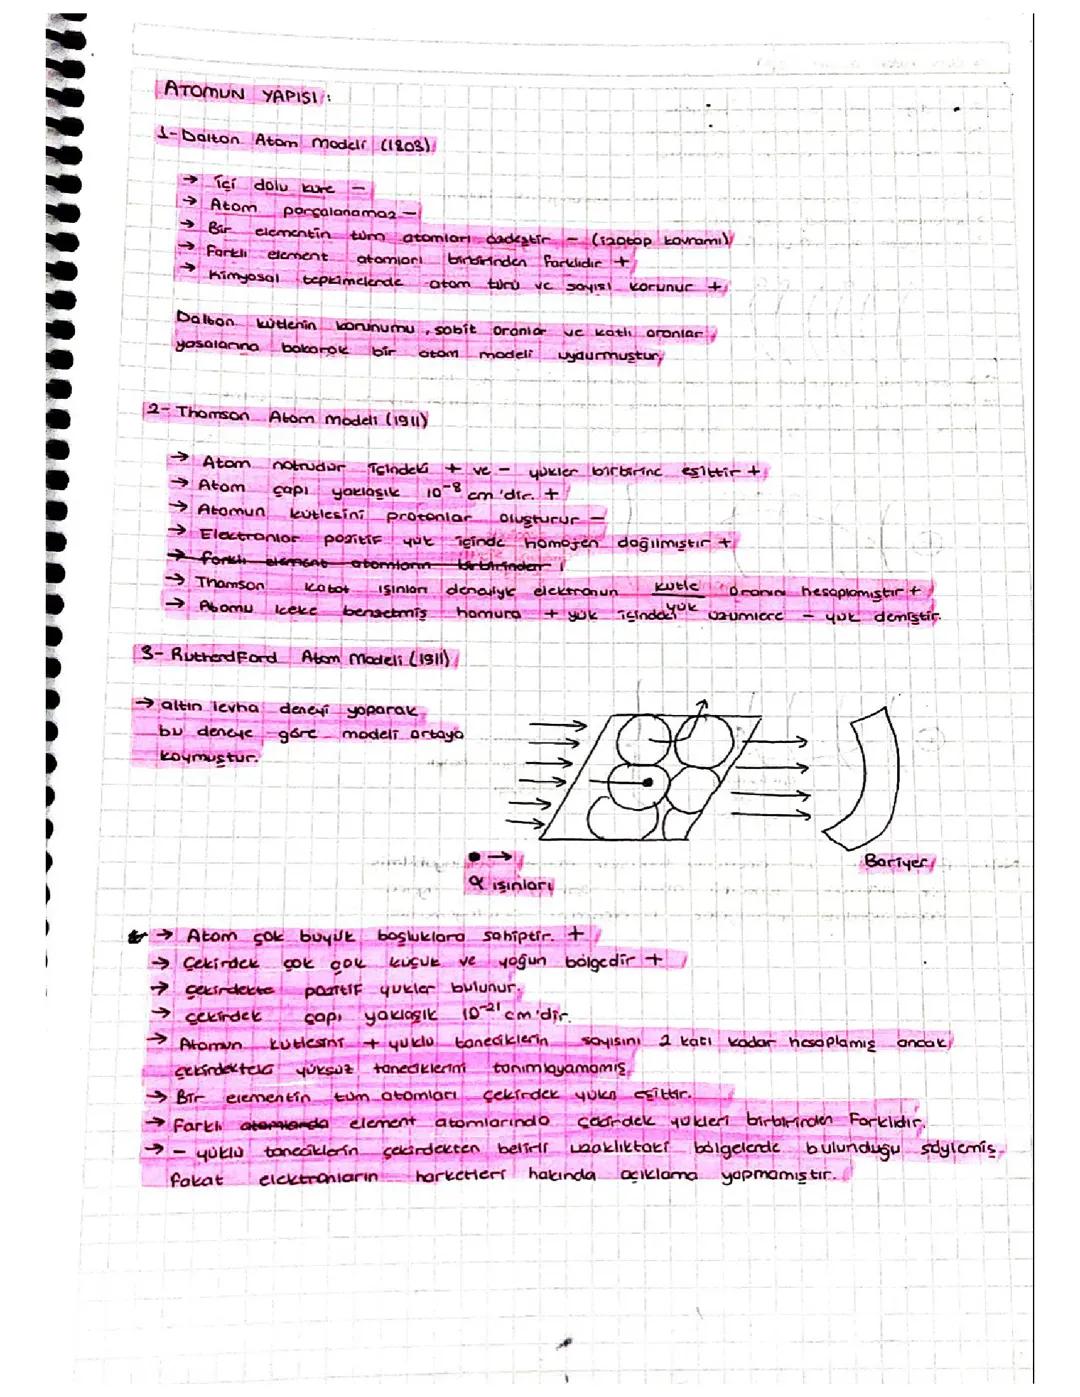 ATOMUN YAPISI:
1- Dalton Atom Modeli (1803)
→ içi dolu küre -
→ Atom parçalanamaz -
→ Bir elementin tüm atomları özdeştir - (izotop kavramı)
→ Farklı element atomları birbirinden farklıdır +
→ Kimyasal tepkimelerde atom türü ve sayısı korunur +
Dalton kütlenin korunumu, sabit oranlar ve katlı oranlar
yasalarına bakarak bir atom modeli uydurmuştur
2- Thomson Atom Modeli (1911)
→ Atom nötrudür içindeki + ve - yükler birbirine eşittir +
→ Atom çapı yaklaşık 10⁻⁸ cm'dir. +
→ Atomun kütlesini protonlar oluşturur -
→ Elektronlar pozitif yük içinde homojen dağılmıştır +
→ farklı element atomların birbirinden
→ Thomson katot ışınları deneyiyle elektronun kütle/yük oranını hesaplamıştır +
→ Atomu keke benzetmiş hamura + yük içindeki üzümlere - yük demiştir.
3- Rutherdford Atom Modeli (1911)
→ altın levha deneyi yaparak
bu deneye göre modeli ortaya
koymuştur.
Bariyer
α ışınları
→ Atom çok büyük boşluklara sahiptir. +
→ Çekirdek çok çok küçük ve yoğun bölgedir +
→ çekirdekte pozitif yükler bulunur.
→ çekirdek çapı yaklaşık 10⁻²¹ cm'dir.
→ Atomun kütlesini + yüklü taneciklerin sayısını 2 katı kadar hesaplamış ancak
çekirdekteki yüksüz taneciklerini tanımlayamamış
→ Bir elementin tüm atomları çekirdek yükü eşittir.
→ Farklı atomlarda element atomlarında çekirdek yükleri birbirinden Farklıdır.
→ - yüklü taneciklerin çekirdekten belirli uzaklıktaki bölgelerde bulunduğu söylemiş
fakat elektronların harketleri hakında açıklama yapmamıştır.